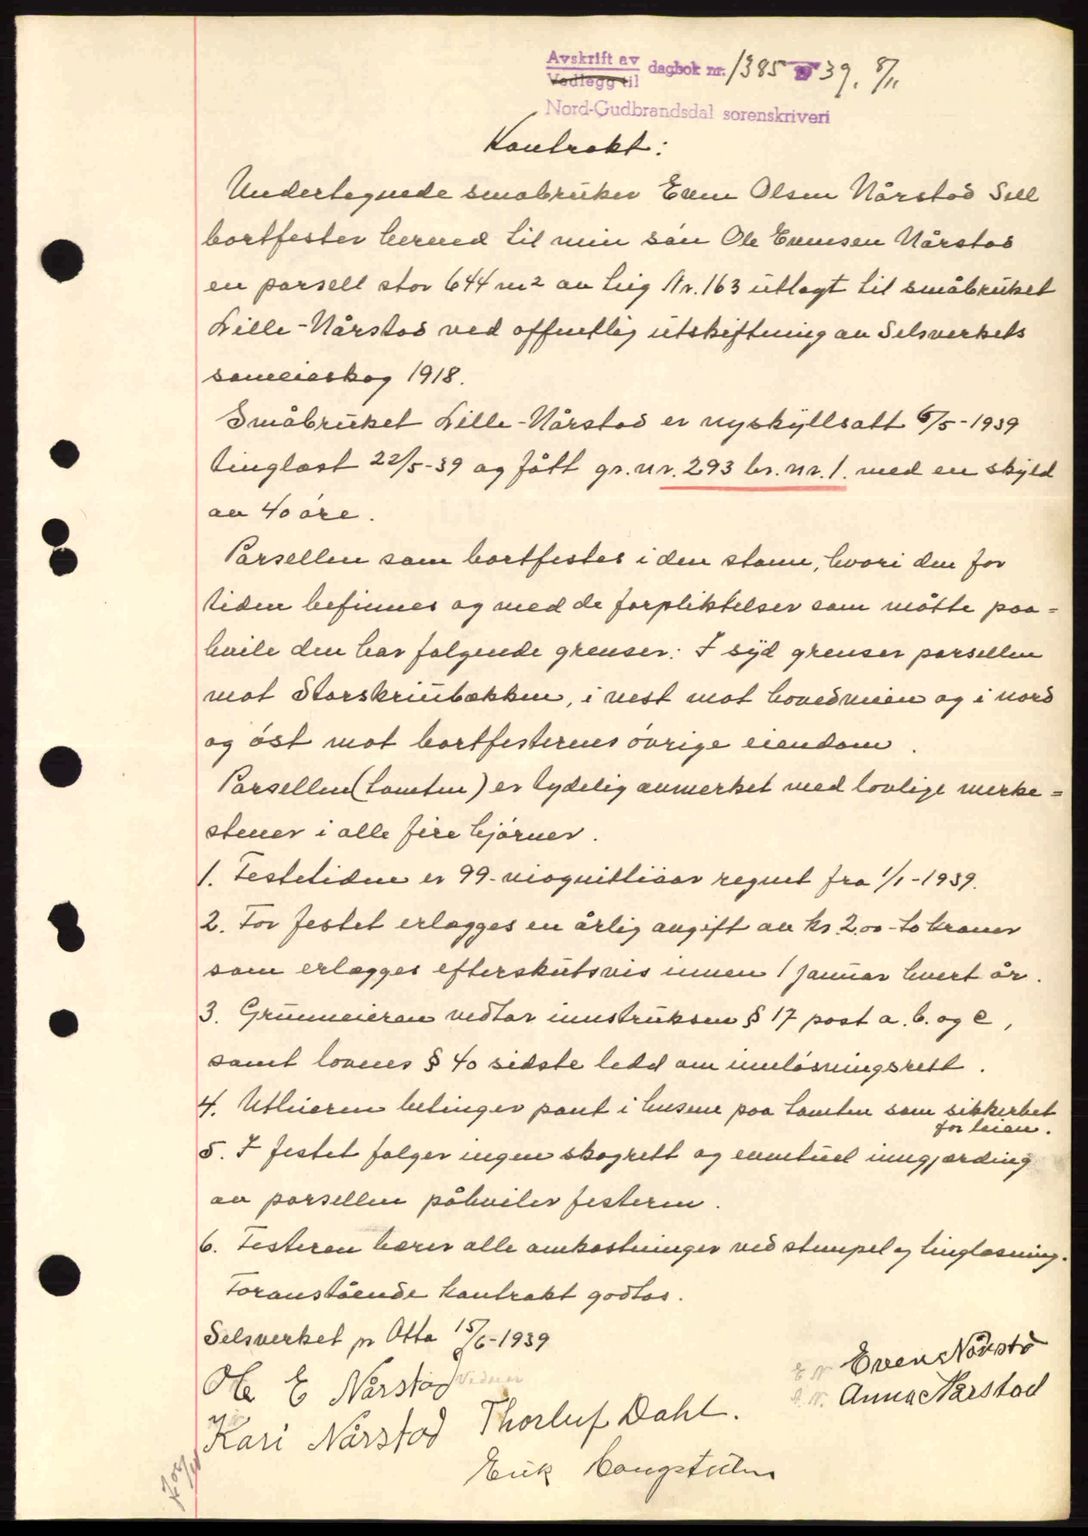 Avskrift av
Vedlegg til dagbok nr. 1385 39. 8/11
Nord-Gudbrandsdal sorenskriveri
Kontrakt:
Undertegnede småbruker Even Olsen Nårstad Sell
bortfester herved til min søn Ole Evensen Nårstad
en parsell stor 644 m2 av teig Nr. 163 utlagt til småbruket
Lille-Nårstad ved offentlig utskiftning av Selsverkets
sameieskog 1918.
Småbruket Lille-Nårstad er nyskyllsatt 6/5-1939
tinglæst 22/5-39 og fått gr. nr. 293 br. nr. 1. med en skyld
av 40 øre.
Parsellen som bortfestes i den stann, hvori den for
tiden befinnes og med de forpliktelser som måtte paa-
hvile den har følgende grenser: I syd grenser parsellen
mot Storskriubækken, i vest mot hovedveien og i nord
og øst mot bortfesternes øvrige eiendom.
Parsellen (tomten) er tydelig avmerket med lovlige merke=
stener i alle fire hjørner.
1. Festetiden er 99-niognittiaar regnet fra 1/1-1939.
2. For festet erlægges en årlig avgift av kr. 2.00-to kroner
som erlægges efterskutsvis innen 1 januar hvert år.
3. Grunneieren vedtar innstruksen § 17 post a. b. og c,
samt lovens § 40 sidste ledd om innløsningsrett.
4. Utleieren betinger pant i husene paa tomten som sikkerhet
for leien.
5. I festet følger ingen skogrett og eventuel inngjærding
av parsellen påhviler festeren.
6. Festeren bærer alle omkostninger ved stempel og tinglæsning.
Foranstående kontrakt godtas.
Selsverket pr Otta 15/6-1939
Even Nårstad
Ole E Nårstad
Anna Nårstad
Kari Nårstad
Thorleif Dahl.
Erik